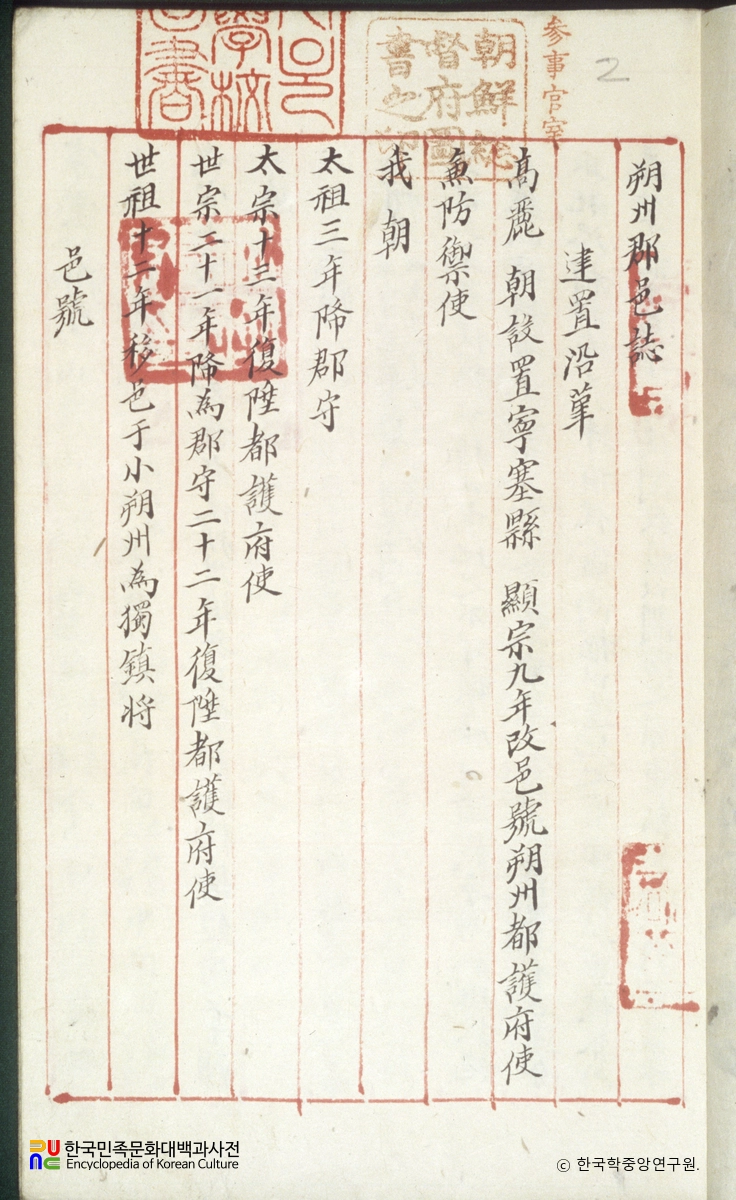 朔州郡邑誌
建置沿革
高麗 朝設置寧塞縣 顯宗九年改邑號朔州都護府使
兼防禦使
我 朝
太祖三年降郡守
太宗十三年復陞都護府使
世宗二十一年降為郡守二十二年復陞都護府使
世祖十二年移邑于小朔州為獨鎮將
邑號
參事官室
2
朝鮮總
督府圖
書之印
한국민족문화대백과사전
Encyclopedia of Korean Culture
© 한국학중앙연구원.